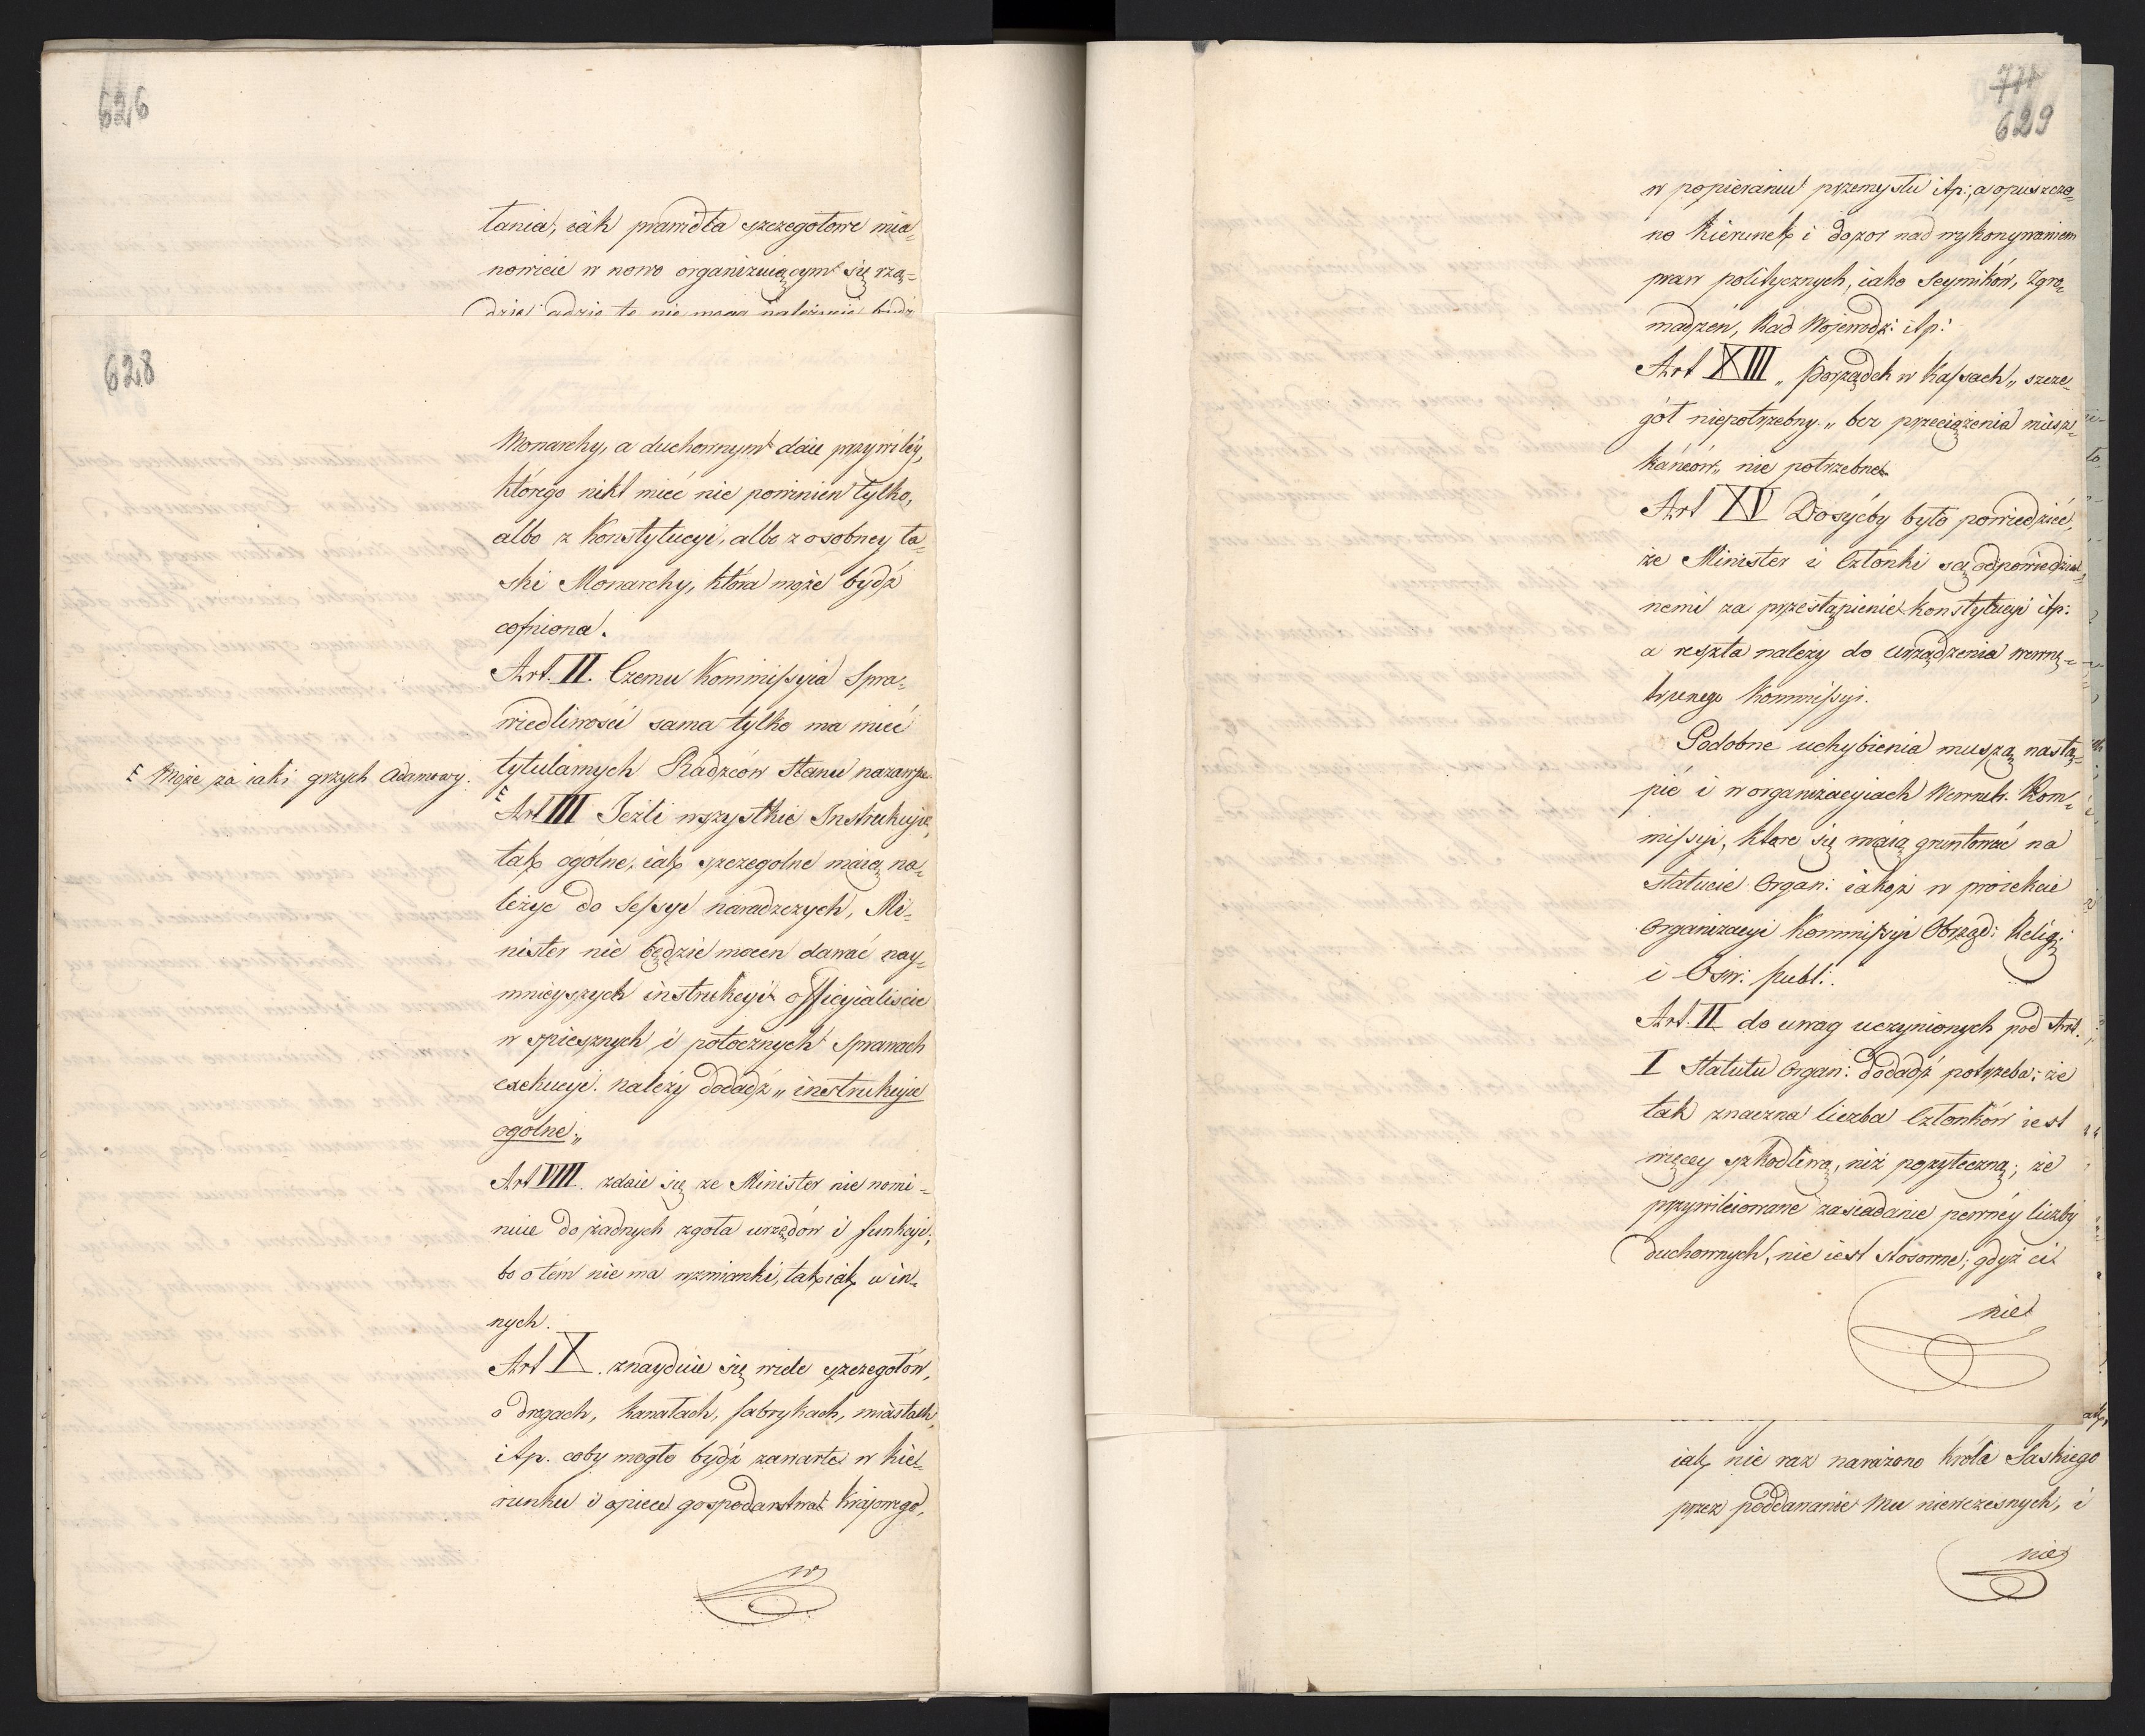 626
łania, iák prawidła szczegołowe mia-
nowicie w nowo organizuiącym się rzą-
dzie gdzie te nie mogą należycie bydź
628
Monarchy, a duchownym daie przywiley,
którego nikt mieć nie powinien tylko,
albo z Konstytucyi, albo z osobney ła-
ski Monarchy, która może bydź
cofniona.
Art. II. Czemu Kommissyia Spra-
wiedliwości sama tylko ma mieć
tytularnych Radzców Stanu nazawsze
Może za iaki grzych Adamowy.
Art III Jeżli wszystkie Instrukcyje,
tak ogólne, iak szczegolne maią na-
leżyć do Sessyi naradczych, Mi-
nister nie będzie mocen dawać nay-
mnieyszych instrukcyi officyialiscie
w spiesznych i potocznych sprawach
exekucyi. należy dodadź „instrukcyie
ogolne„
Art VIII. zdaie się ze Minister nie nomi-
nuie do żadnych zgoła urzędów i funkcyi,
bo o tém nie ma wzmianki, tak iak u in-
nych.
Art X. znayduie się wiele szczegołów,
o drogach, kanałach, fabrykach, miastach,
itp. coby mogło bydź zawarte w kie-
runku i opiece gospodarstwa Krajowego,
w
711
629
w popieraniu przemysłu itp:, a opuszczo-
no kierunek i dozor nad wykonywaniem
praw politycznych, iako Seymików, Zgro-
madzeń, Rad Wojewodz: itp:
Art XIII „Porządek w Kassach„ szcze-
gół niepotrzebny. „bez przeciążenia miesz-
kańców„ nie potrzebne
Art XV Dosyćby było powiedzieć,
że Minister i Członki są odpowiedzial-
nemi za przestąpienie konstytucyi itp:
a reszta należy do urządzenia wewnę-
trznego Kommissyi.
Podobne uchybienia muszą nastą-
pić i w organizacyiach Wewnętr. Kom-
missyi, ktore się maią gruntować na
statucie Organ: iakoż w proiekcie
Organizacyi Kommissyi Obrząd: Relig:
i Ośw: publ:
Art. II do uwag uczynionych pod Art.
I Statutu Organ: dodadź potrzeba: że
tak znaczna liczba Członków iest
więcey szkodliwą, niż pożyteczną; że
przywileiowane zasiadanie pewnéy liczby
duchownych, nie iest stosowne; gdyż ci
nie
iak nie raz narażono Króla Saskiego
przez poddawanie Mu niewczesnych, i
nie